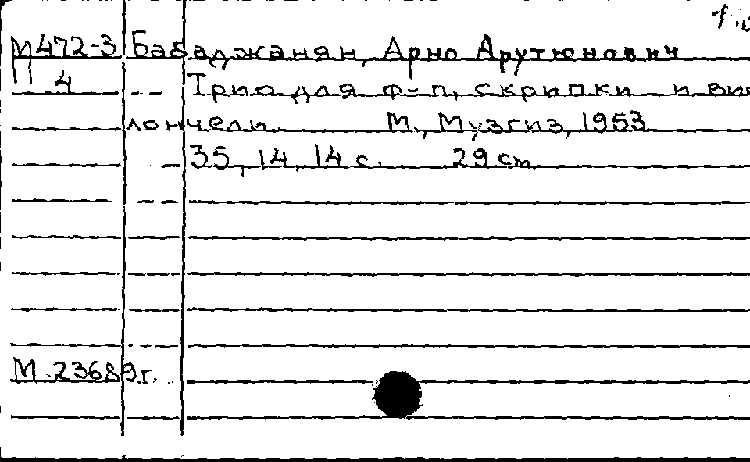 М472-3 Бабаджанян, Арно Арутюнович
4 Трио для ф-п, скрипки и вио
лончели. М., Музгиз, 1953
35, 14, 14 с. 29 cm
М 23689г.